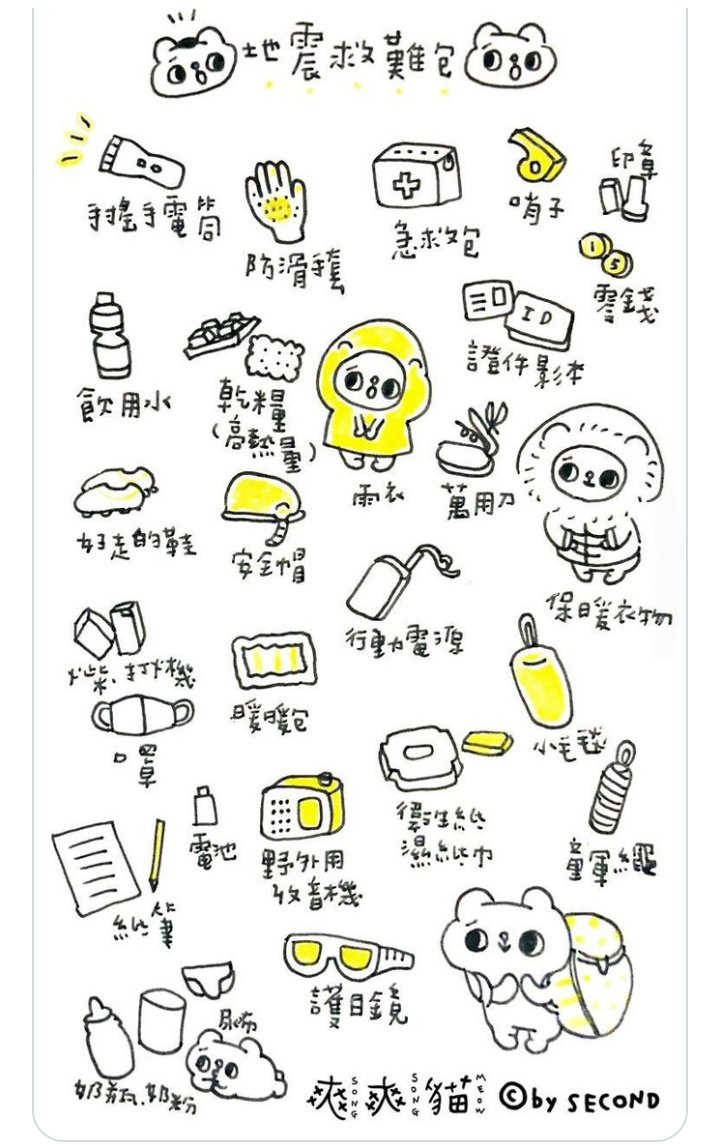 地震救難包
手搖手電筒
防滑手套
急救包
哨子
印章
1
5
零錢
ID
證件影本
飲用水
乾糧
(高熱量)
雨衣
萬用刀
好走的鞋
安全帽
行動電源
保暖衣物
火柴、打火機
暖暖包
小毛毯
口罩
電池
野外用
收音機
衛生紙
濕紙巾
童軍繩
紙筆
護目鏡
尿布
奶瓶、奶粉
爽SONG爽SONG貓MEOW ©by SECOND